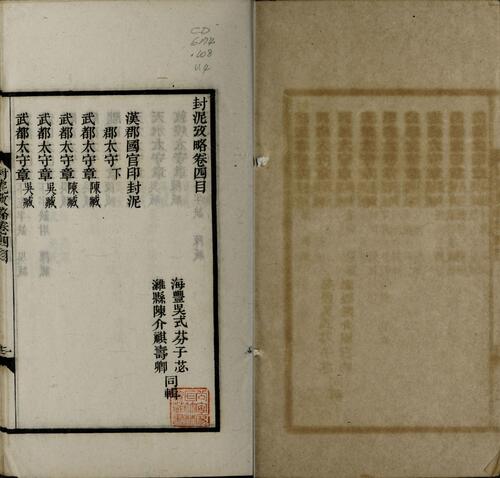 封泥攷略卷四目
海豐吳式芬子苾
濰縣陳介祺壽卿
同輯
漢郡國官印封泥
郡太守下
武都太守章陳臧
武都太守章陳臧
武都太守章吳臧
武都太守章吳臧
封泥攷略卷四目
CD